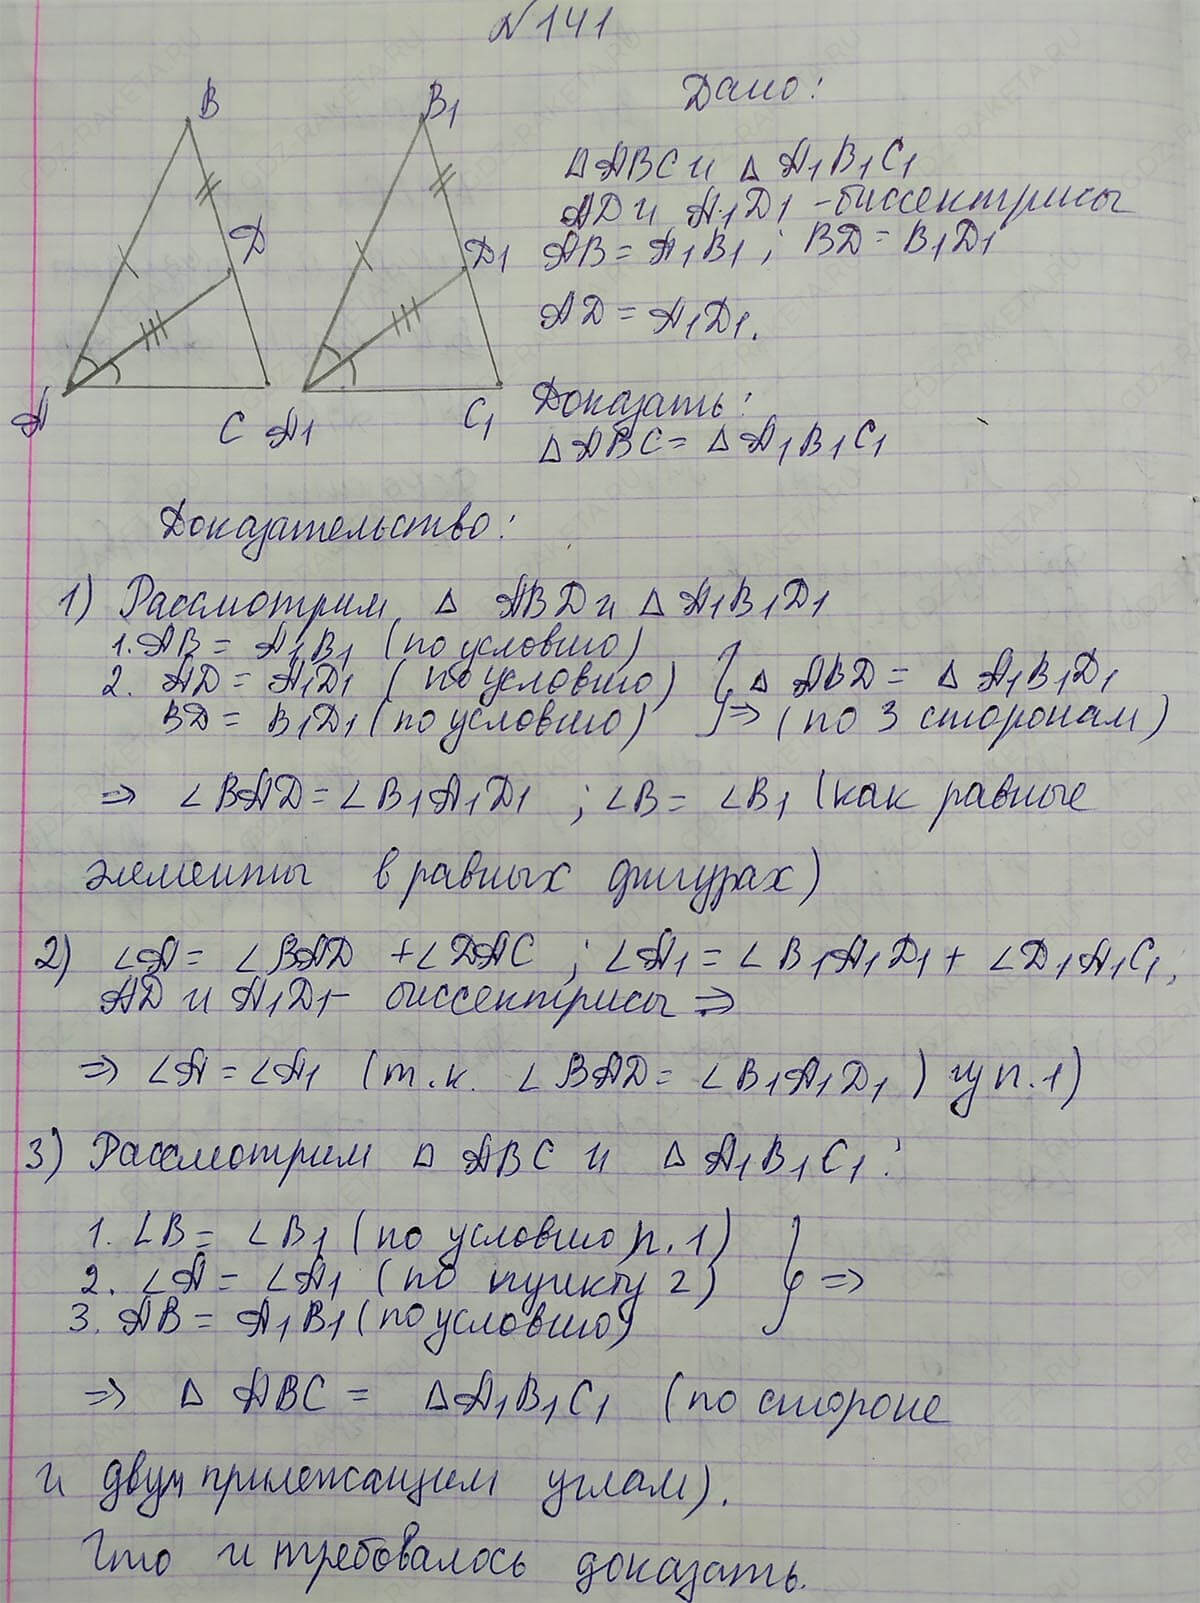 № 141
B
B1
D
D1
A
C
A1
C1
Дано:
△ ABC и △ A1B1C1
AD и A1D1 - биссектрисы
AB = A1B1 ; BD = B1D1
AD = A1D1.
Доказать:
△ ABC = △ A1B1C1
Доказательство:
1) Рассмотрим △ ABD и △ A1B1D1
1. AB = A1B1 (по условию)
2. AD = A1D1 (по условию) } △ ABD = △ A1B1D1
BD = B1D1 (по условию) => (по 3 сторонам)
=> ∠BAD = ∠B1A1D1 ; ∠B = ∠B1 (как равные
элементы в равных фигурах)
2) ∠A = ∠BAD + ∠DAC ; ∠A1 = ∠B1A1D1 + ∠D1A1C1;
AD и A1D1 - биссектрисы =>
=> ∠A = ∠A1 (т.к. ∠BAD = ∠B1A1D1) п.1)
3) Рассмотрим △ ABC и △ A1B1C1:
1. ∠B = ∠B1 (по условию п.1)
2. ∠A = ∠A1 (по пункту 2) } =>
3. AB = A1B1 (по условию)
=> △ ABC = △ A1B1C1 (по стороне
и двум прилежащим углам).
Что и требовалось доказать.